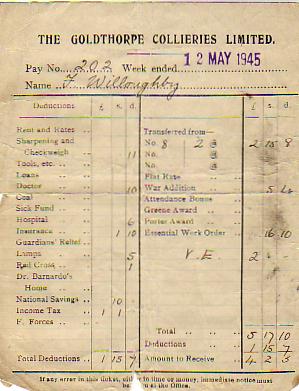 THE GOLDTHORPE COLLIERIES LIMITED.
Pay No. 202 Week ended 12 MAY 1945
Name F. Willoughby
Deductions £ s. d. £ s. d.
Rent and Rates
Sharpening and Checkweigh 11
Tools, etc.
Loans
Doctor 10
Coal
Sick Fund
Hospital 6
Insurance 1 10
Guardians' Relief
Lamps 5
Red Cross 1
Dr. Barnardo's Home
National Savings 10
Income Tax 1 1
F. Forces
Total Deductions 1 15 7
Transferred from—
No. 8 2 @ 2 15 8
No. @
No. @
Flat Rate
War Addition 5 4
Attendance Bonus
Greene Award
Porter Award
Essential Work Order 16 10
V.E. 2
Total 5 17 10
Deductions 1 15 7
Amount to Receive 4 2 3
If any error in this ticket, either in time or money, immediate notice must
be given at the Office.